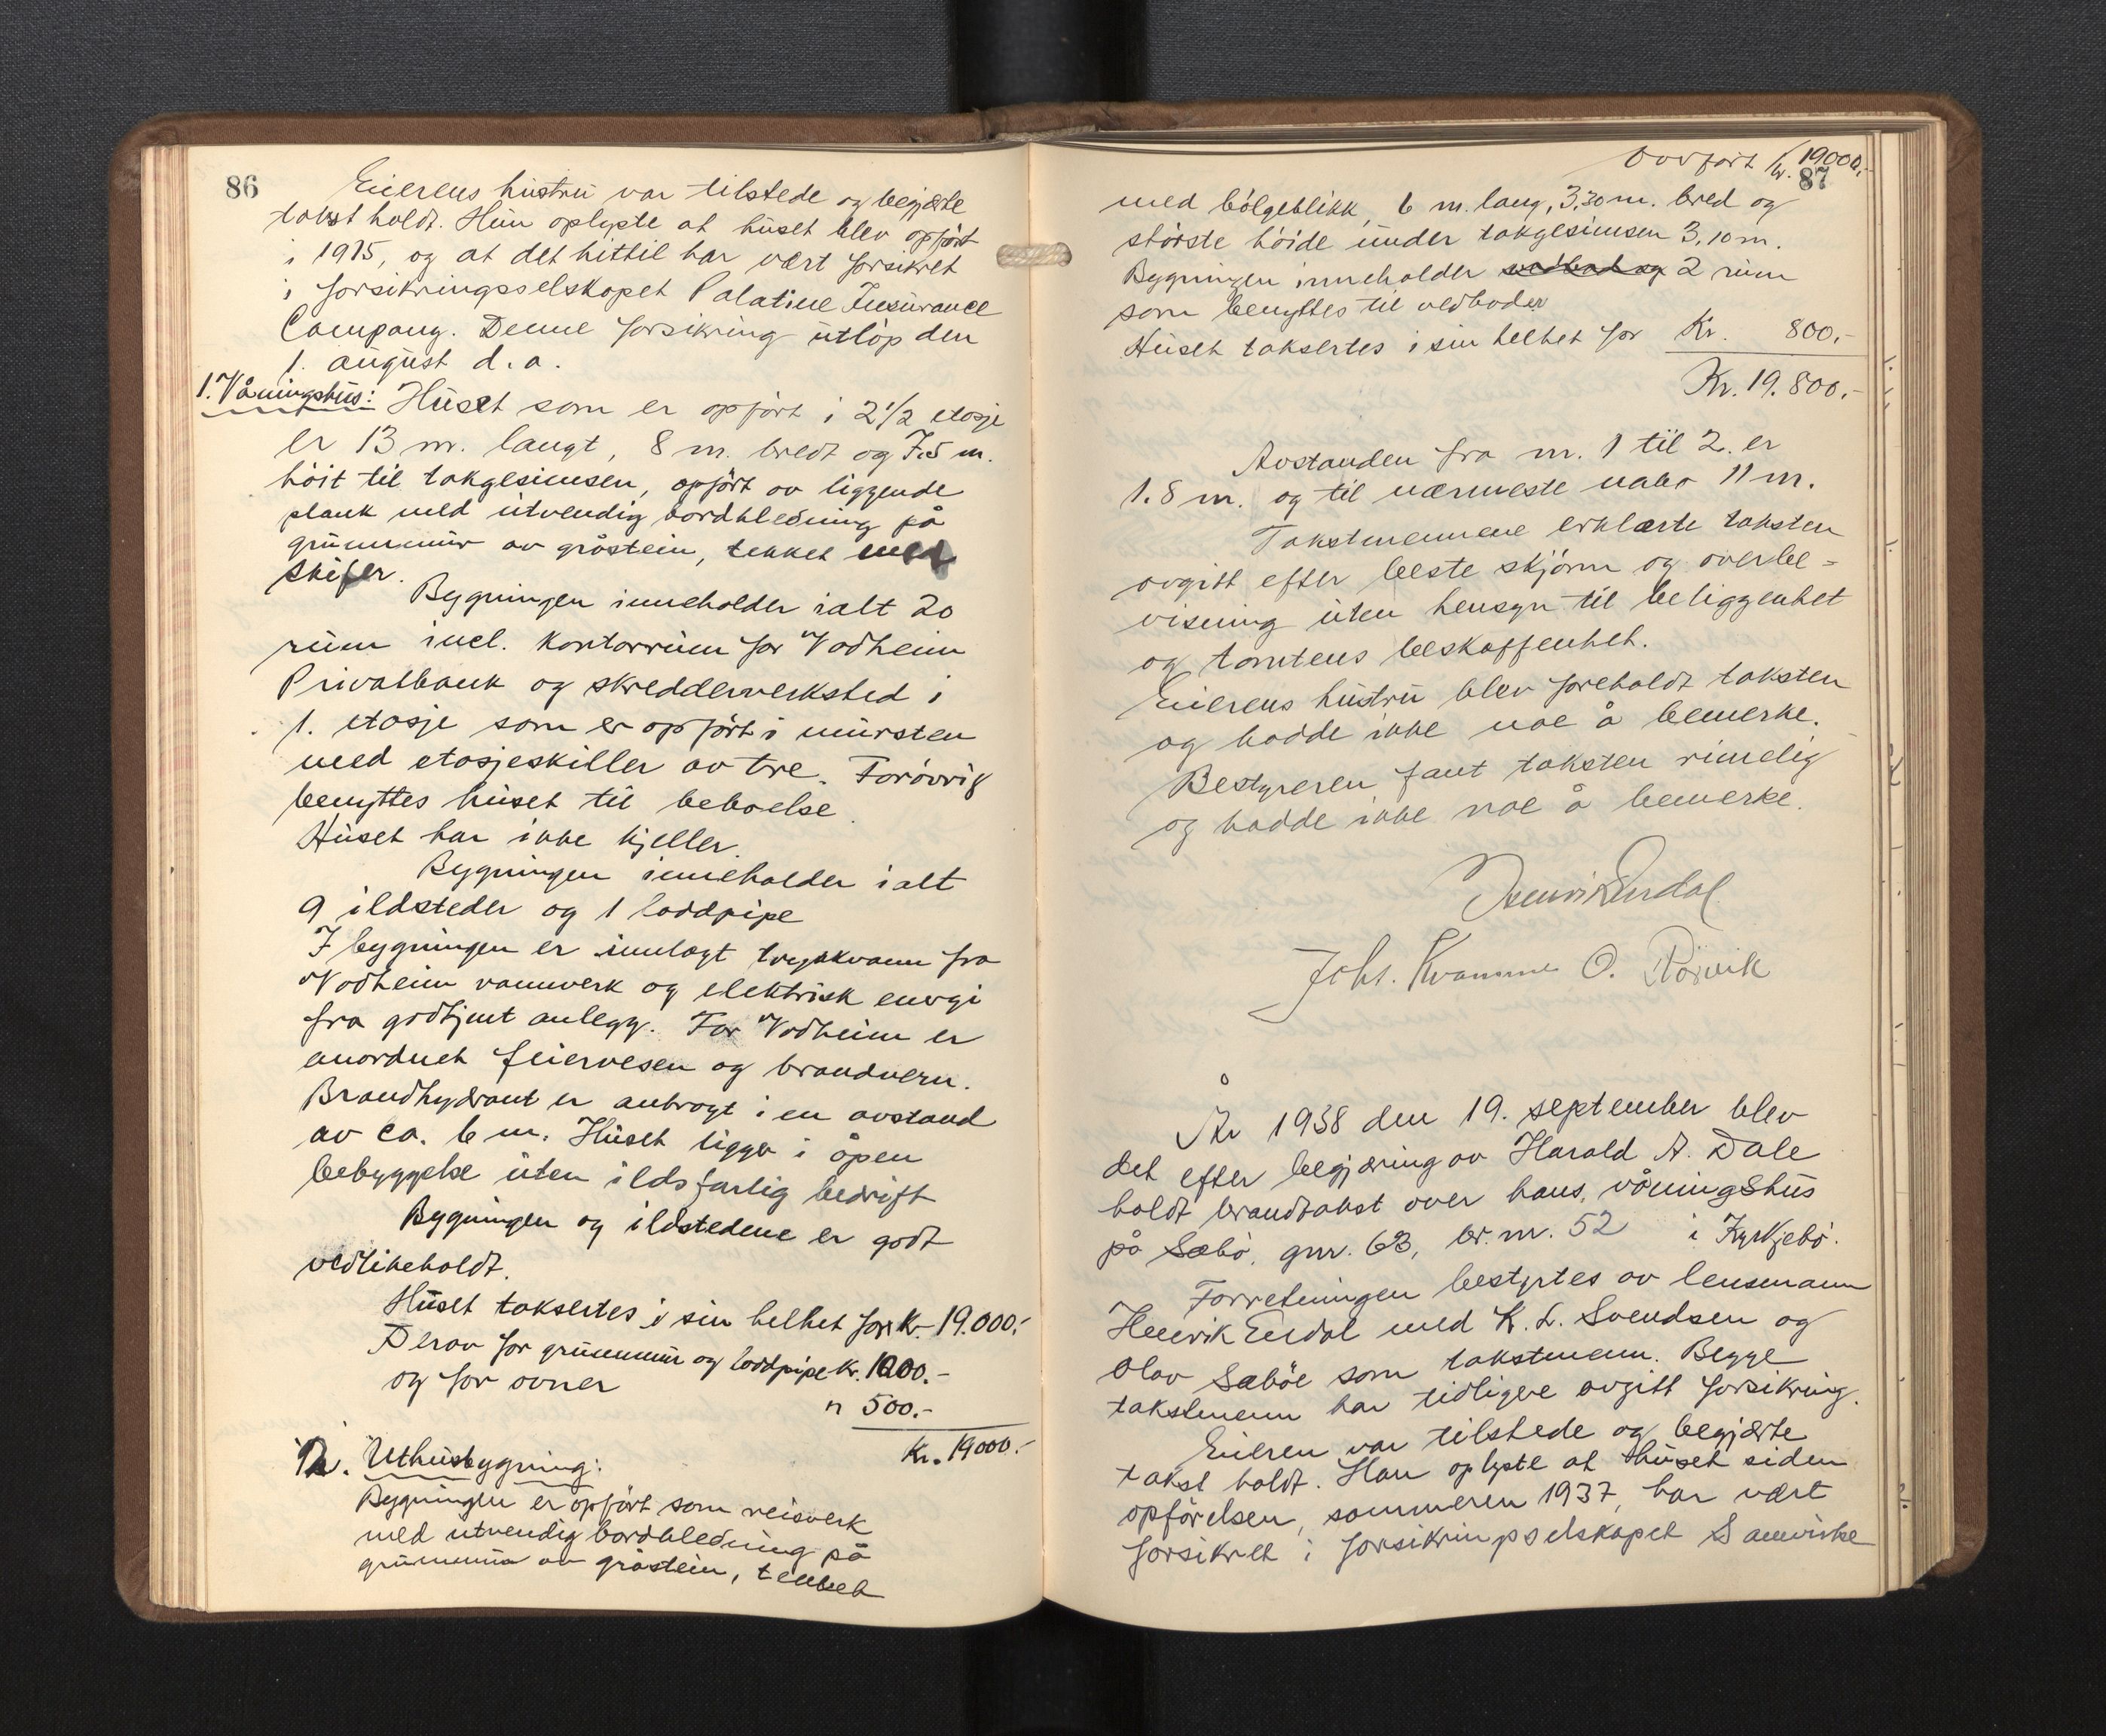 86
Eierens hustru var tilstede og begjærte
takst holdt. Hun oplyste at huset blev opført
i 1915, og at det hittil har vært forsikret
i forsikringsselskapet Palatine Insurance
Company. Denne forsikring utløp den
1. august d. a.
1. Våningshus: Huset som er opført i 2 1/2 etasje
er 13 m. langt, 8 m. bredt og 7.5 m.
høit til takgesimsen, opført av liggende
plank med utvendig bordkledning på
grunnmur av gråstein, tekket med
skifer.
Bygningen inneholder ialt 20
rum incl. kontorrum for Vadheim
Privatbank og skredderverksted i
1. etasje som er opført i mursten
med etasjeskiller av tre. Forøvrig
benyttes huset til beboelse.
Huset har ikke kjeller.
Bygningen inneholder ialt
9 ildsteder og 1 loddpipe
I bygningen er innlagt trykkvann fra
Vadheim vannverk og elektrisk energi
fra godkjent anlegg. For Vadheim er
anordnet feiervesen og brandvern.
Brandhydrant er anbragt i en avstand
av ca. 6 m. Huset ligger i åpen
bebyggelse uten ildsfarlig bedrift
Bygningen og ildstedene er godt
vedlikeholdt.
Huset taksertes i sin helhet for Kr. 19.000.-
Derav for grunnmur og loddpipe Kr. 1000.-
og for ovner " 500.-
Kr. 19000.-
2. Uthusbygning:
Bygningen er opført som reisverk
med utvendig bordkledning på
grunnmur av gråstein, tekket
Overført Kr. 19000.-
87
med bølgeblikk, 6 m. lang, 3,30 m. bred og
største høide under takgesimsen 3,10 m.
Bygningen inneholder vedbod og 2 rum
som benyttes til vedboder
Huset taksertes i sin helhet for Kr. 800.-
Kr. 19.800.-
Avstanden fra nr. 1 til 2. er
1.8 m. og til nærmeste nabo 11 m.
Takstmennene erklærte taksten
avgitt efter beste skjønn og overbe-
visning uten hensyn til beliggenhet
og tomtens beskaffenhet.
Eierens hustru blev foreholdt taksten
og hadde ikke noe å bemerke.
Bestyreren fant taksten rimelig
og hadde ikke noe å bemerke.
Henrik Erdal
Johs. Kvamme O. Rørvik
År 1938 den 19. september blev
det efter begjæring av Harald A. Dale
holdt brandtakst over hans våningshus
på Sæbø, gnr. 63, br. nr. 52 i Kyrkjebø.
Forretningen bestyrtes av lensmann
Henrik Erdal med K. L. Svendsen og
Olav Sæbøe som takstmenn. Begge
takstmenn har tidligere avgitt forsikring.
Eieren var tilstede og begjærte
takst holdt. Han oplyste at huset siden
opførelsen, sommeren 1937, har vært
forsikret i forsikringsselskapet Samvirke